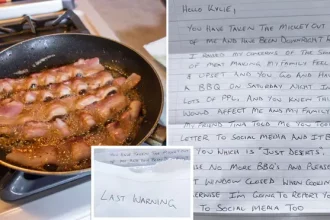 HELLO KYLIE,
YOU HAVE TAKEN THE MICKEY OUT
OF ME AND HAVE BEEN DOWNRIGHT
I RAISED MY CONCERNS OF THE
OF MEAT MAKING MY FAMILY FEEL
& UPSET AND YOU GO AND HA
A BBQ ON SATURDAY NIGHT IN
LOTS OF PPL, AND YOU KNEW THA
WOULD AFFECT ME AND MY F
MY FRIEND TOLD ME YOU TO
LETTER TO SOCIAL MEDIA AND IT B
YOU WHICH IS "JUST DESERTS".
NO MORE BBQ'S AND PLEAS
WINDOW CLOSED WHEN COOKING
I'M GOING TO REPORT YO
TO SOCIAL MEDIA TOO
LAST WARNING